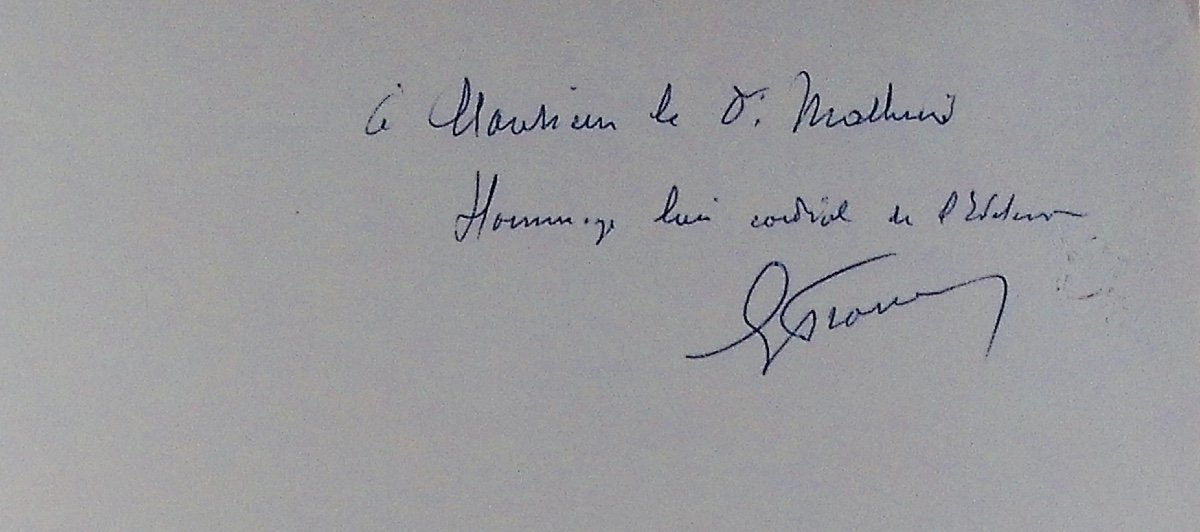 à Monsieur le Dr. Mathieu
Hommage bien cordial de l'Editeur